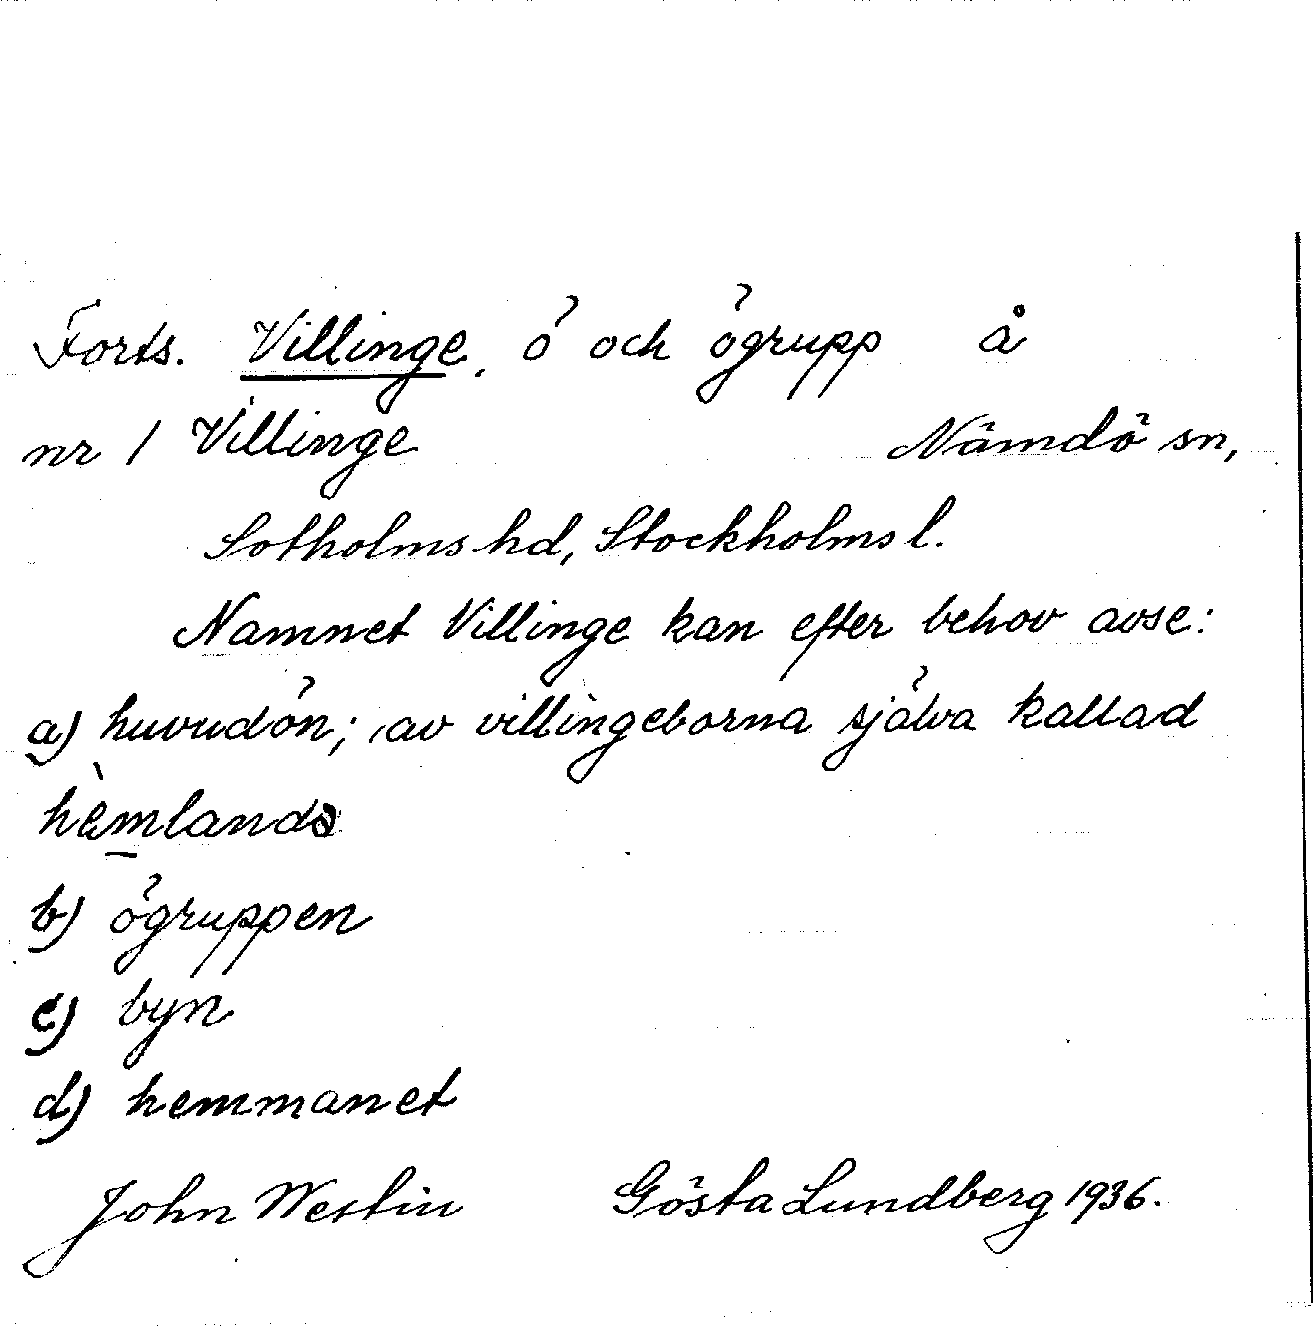 Forts. Villinge, ö och ögrupp å
nr 1 Villinge Nämdö sn,
Sotholms hd, Stockholms l.
Namnet Villinge kan efter behov avse:
a) huvudön; av villingeborna själva kallad
hèmlandə
b) ögruppen
c) byn
d) hemmanet
John Westin Gösta Lundberg 1936.